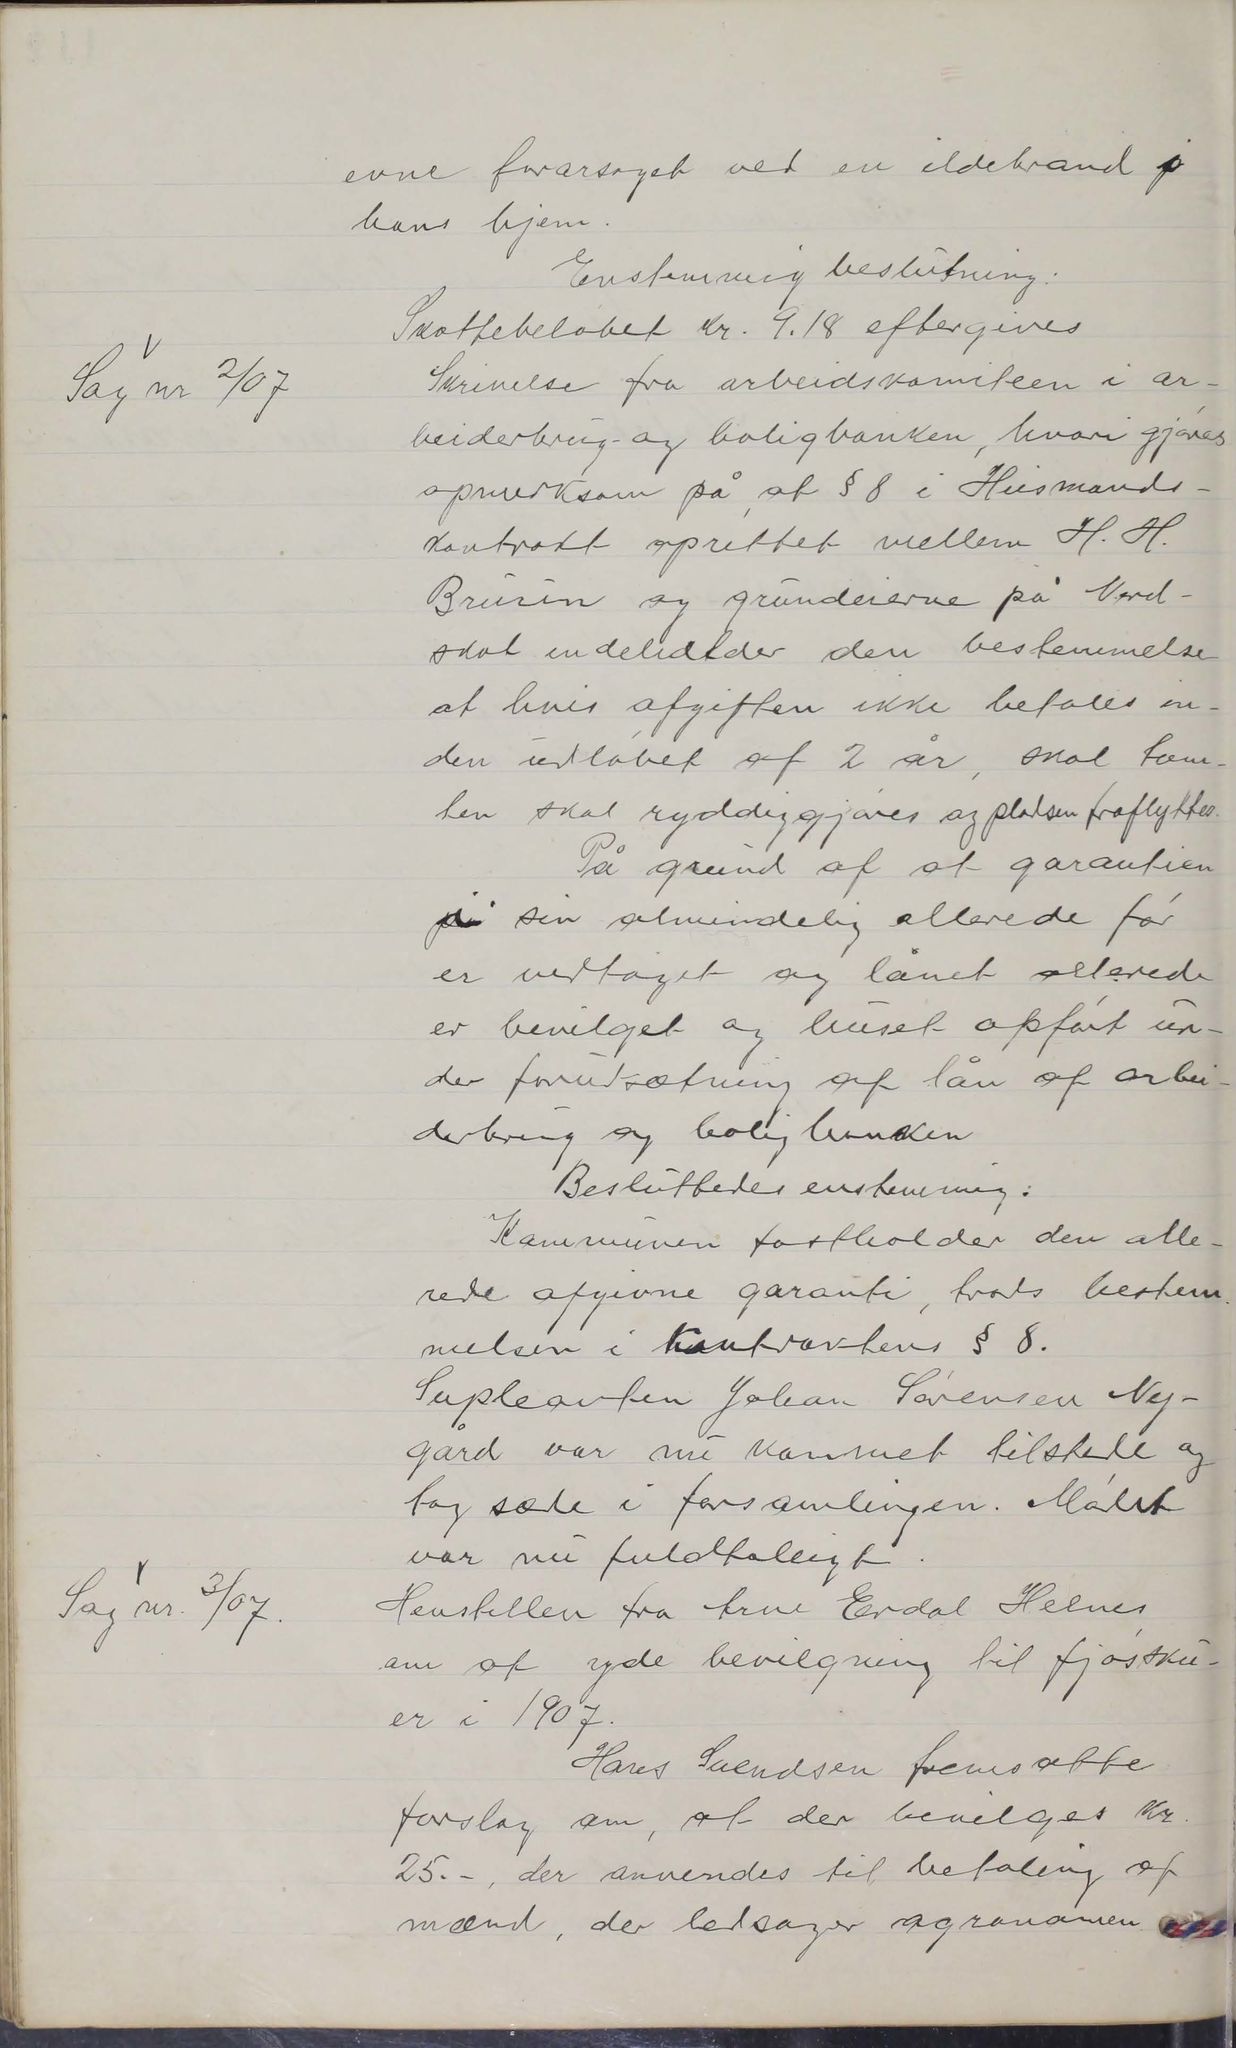 evne forarsaget ved en ildebrand i
hans hjem.
Enstemmig beslutning:
Skattebeløbet kr. 9.18 eftergives
Sag nr 2/07
Skrivelse fra arbeidskomiteen i ar-
beiderbrug- og boligbanken, hvori gjøres
opmerksom på, at § 8 i Husmands-
kontrakt oprettet mellem H. H.
Bruun og grundeierne på Nord-
skot indeholder den bestemmelse
at hvis afgiften ikke betales in-
den udløbet af 2 år, skal tom-
ten skal ryddiggjøres og pladsen fraflyttes.
På grund af at garantien
i sin almindelig allerede før
er vedtaget og lånet allerede
er bevilget og huset opført un-
der forudsætning af lån af arbei-
derbrug og boligbanken
Besluttedes enstemmig:
Kommunen fastholder den alle-
rede afgivne garanti, trods bestem-
melsen i kontraktens § 8.
Supleanten Johan Sørensen Ny-
gård var nu kommet tilstede og
tog sæde i forsamlingen. Mødet
var nu fuldtalligt.
Sag nr. 3/07.
Henstillen fra Arne Erdal Helnes
om at yde bevilgning til fjøsku-
er i 1907.
Hans Svendsen fremsatte
forslag om, at der bevilges kr.
25.-, der anvendes til betaling af
mænd, der ledsager agronomen